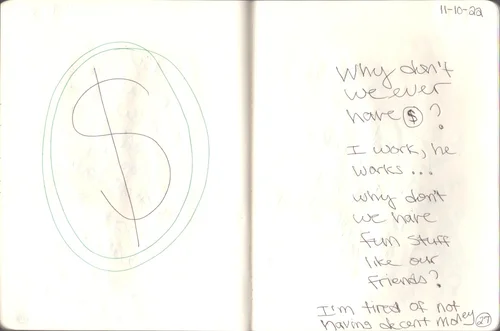 $
11-10-22
Why don't
we ever
have $ ?
I work, he
works...
why don't
we have
fun stuff
like our
friends?
I'm tired of not
having decent money
27